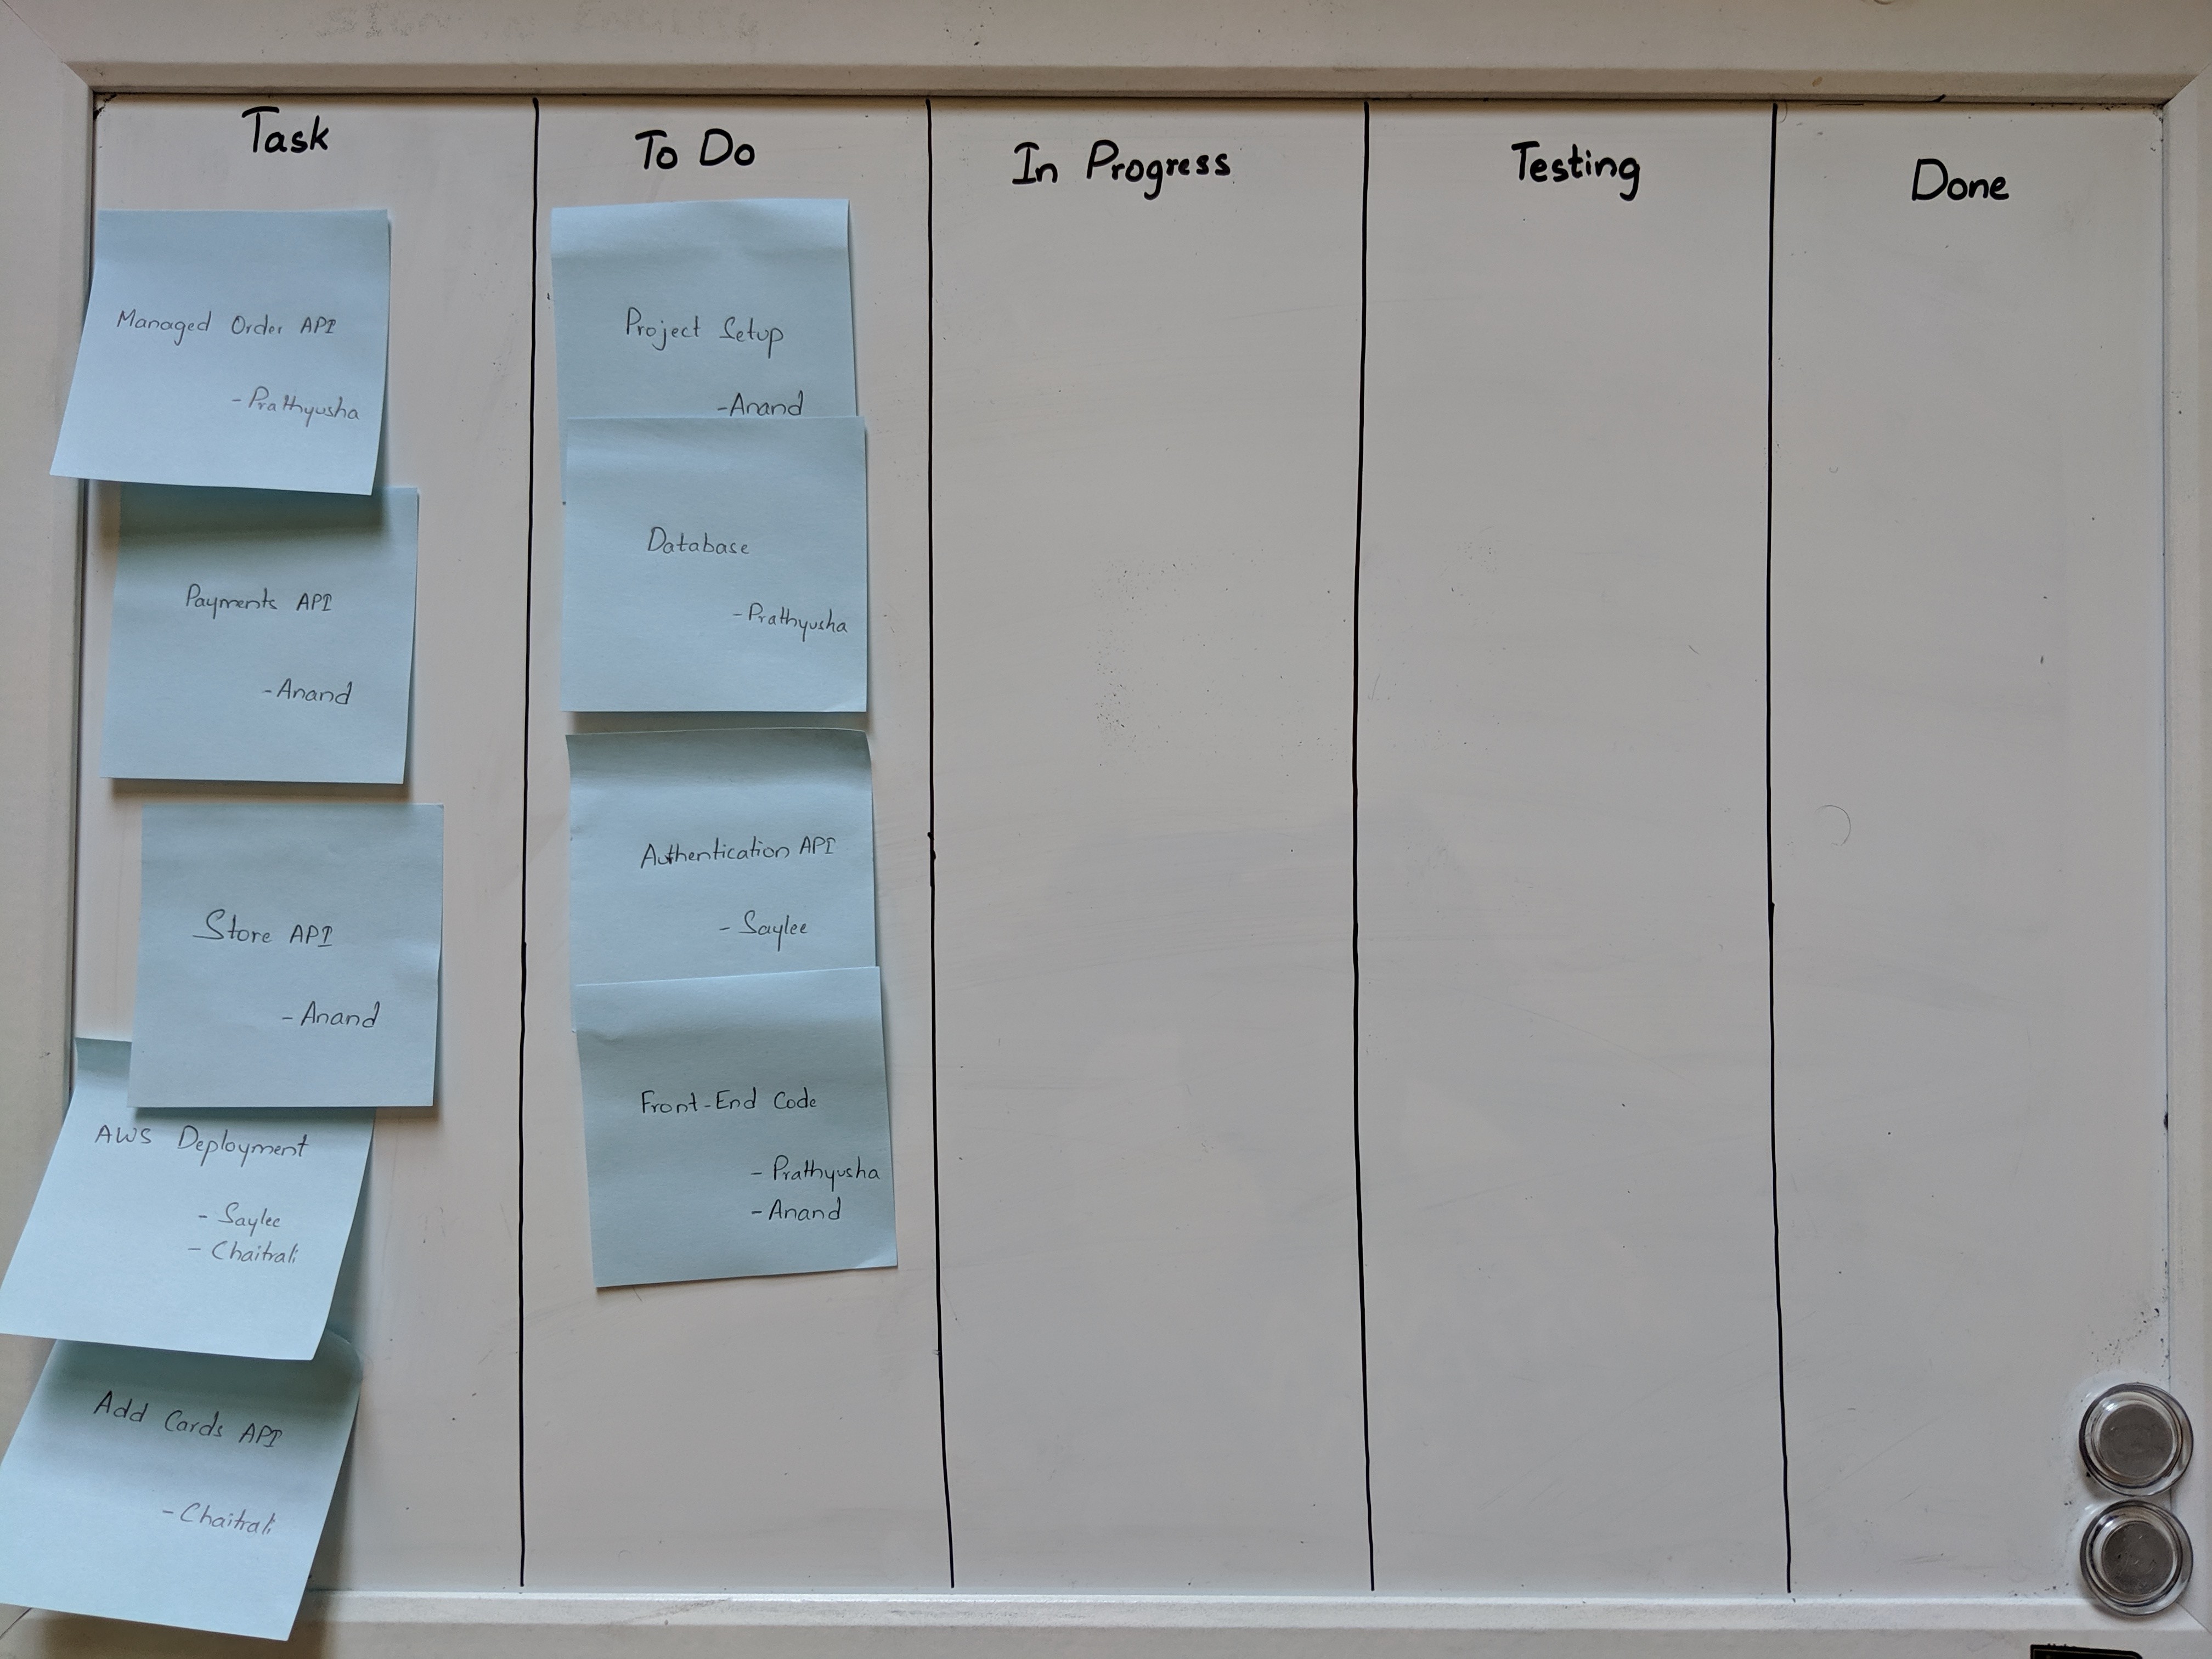 Task
Managed Order API
-Prathyusha
Payments API
-Anand
Store API
-Anand
AWS Deployment
- Saylee
- Chaitrali
Add Cards API
-Chaitrali
To Do
Project Setup
-Anand
Database
-Prathyusha
Authentication API
- Saylee
Front-End Code
- Prathyusha
-Anand
In Progress
Testing
Done